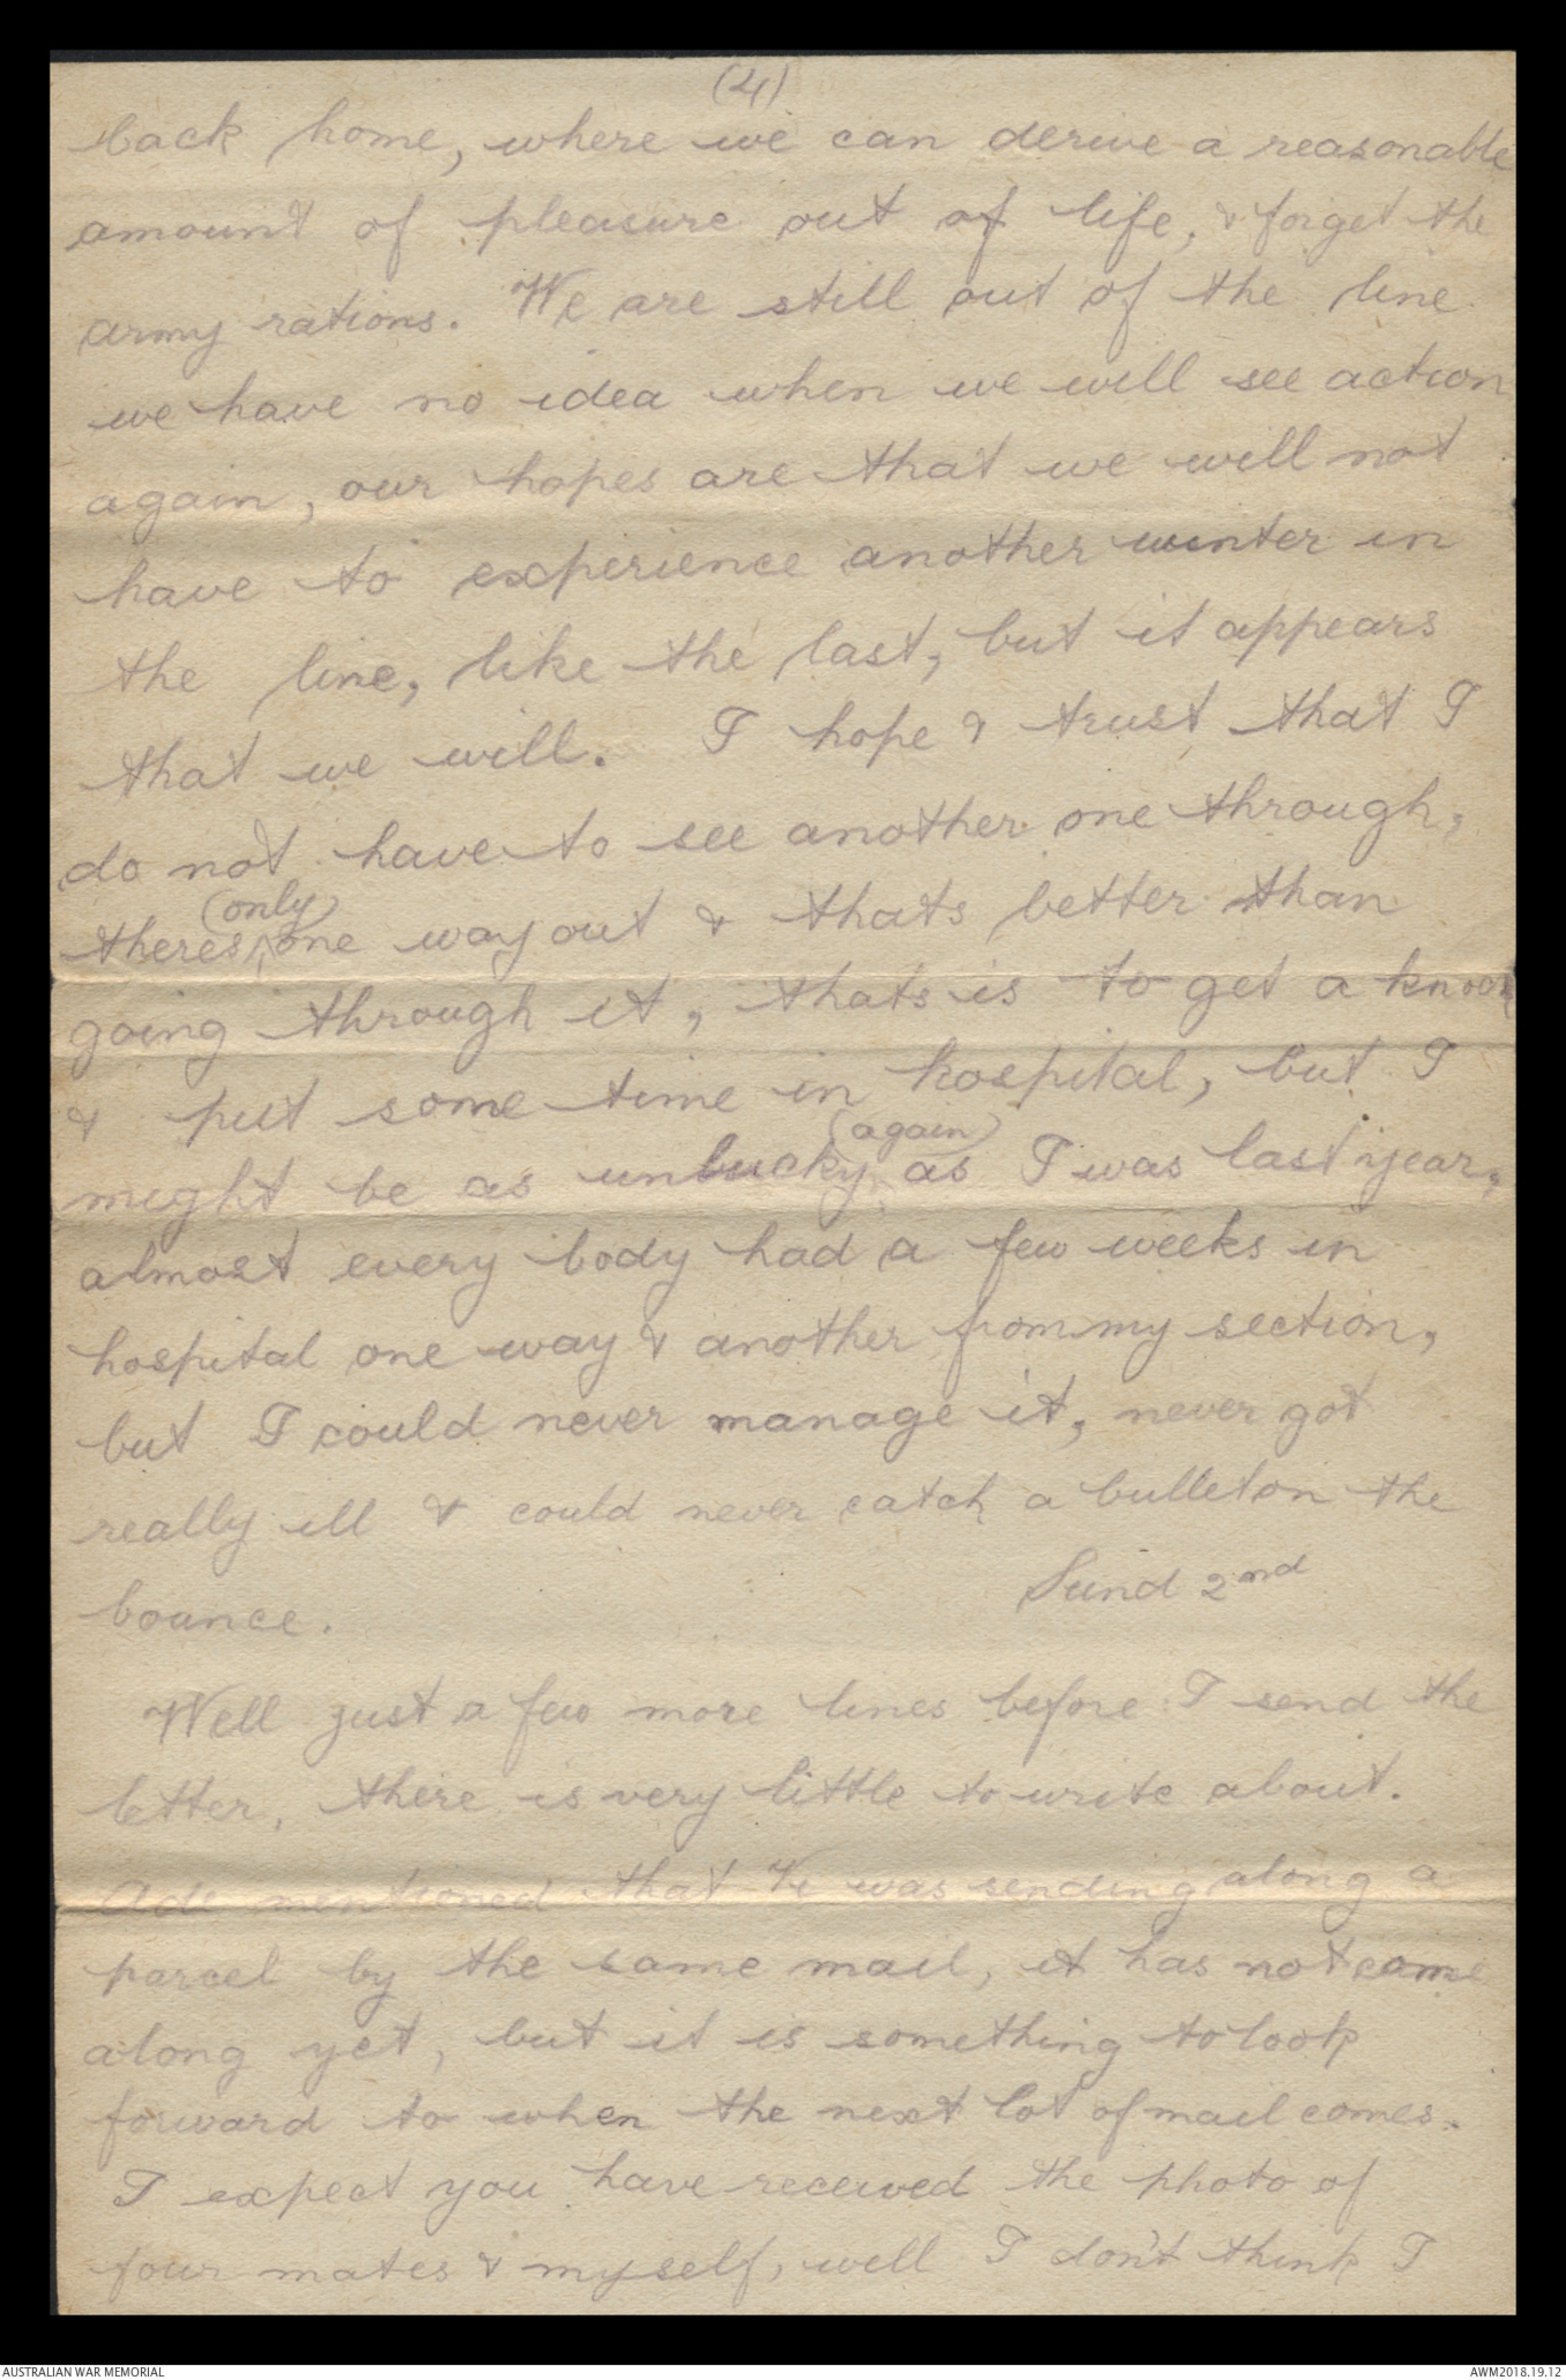 (4)
back home, where we can derive a reasonable
amount of pleasure out of life, & forget the
army rations. We are still out of the line
we have no idea when we will see action
again, our hopes are that we will not
have to experience another winter in
the line, like the last, but it appears
that we will. I hope & trust that I
do not have to see another one through,
(only)
theres one way out & thats better than
going through it, thats is to get a knock
& put some time in hospital, but I
(again)
might be as unlucky as I was last year,
almost every body had a few weeks in
hospital one way & another from my section,
but I could never manage it, never got
really ill & could never catch a bullet on the
bounce.
Sund 2nd
Well just a few more lines before I send the
letter, there is very little to write about.
Ade mentioned that He was sending along a
parcel by the same mail, it has not come
along yet, but it is something to look
forward to when the next lot of mail comes.
I expect you have received the photo of
four mates & myself, well I don't think I
AUSTRALIAN WAR MEMORIAL
AWM2018.19.12